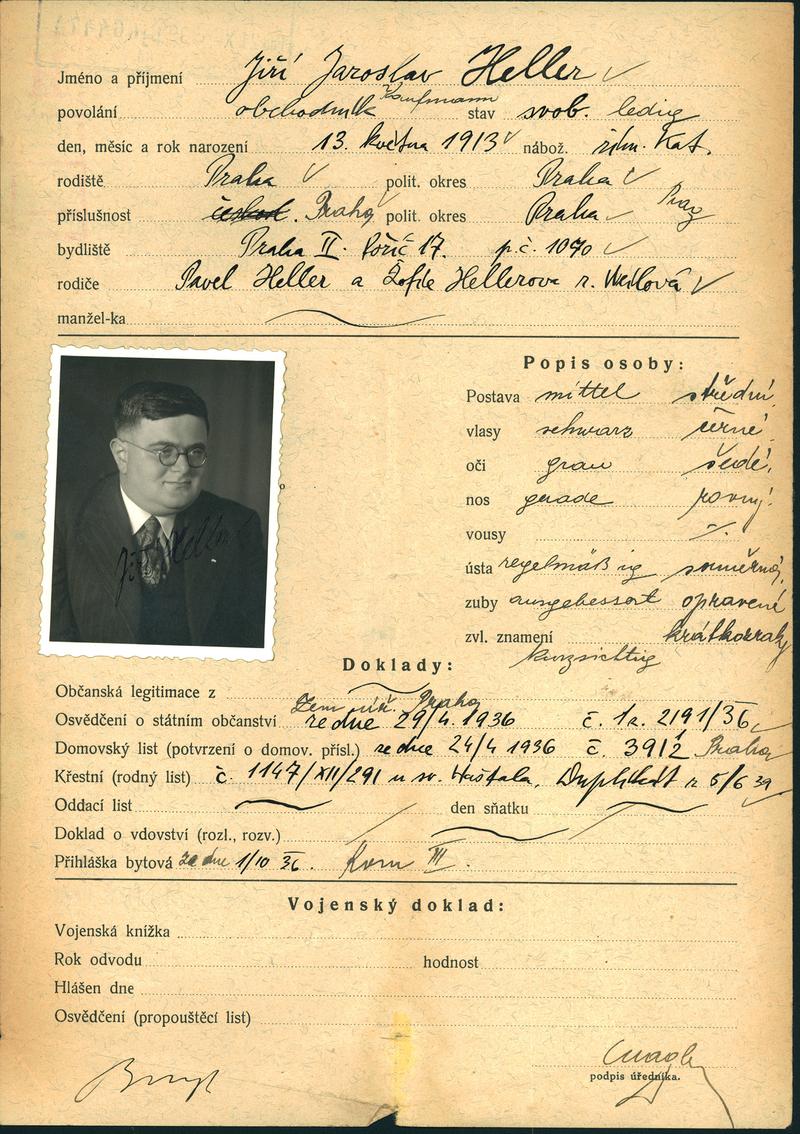 Jméno a příjmení Jiří Jaroslav Heller
povolání obchodník Kaufmann stav svob. ledig
den, měsíc a rok narození 13. května 1913 nábož. řím. Kat.
rodiště Praha polit. okres Praha
příslušnost Praha polit. okres Praha Prag
bydliště Praha II. Poříč 17. p.č. 1070
rodiče Pavel Heller a Žofie Hellerova r. Weilová
manžel-ka
Popis osoby:
Postava mittel střední
vlasy schwarz černé
oči grau šedé
nos gerade rovný
vousy
ústa regelmäßig souměrná
zuby ausgebessert opravené
zvl. znamení krátkozraký
kurzsichtig
Jiří Heller
Doklady:
Občanská legitimace z
Zem. úř. Praha
Osvědčení o státním občanství ze dne 29/4. 1936 č. 2191/36
Domovský list (potvrzení o domov. přísl.) ze dne 24/4 1936 č. 3912 Praha
Křestní (rodný list) č. 1147/XII/291 u sv. Haštala, Duplikát z 5/6 39
Oddací list den sňatku
Doklad o vdovství (rozl., rozv.)
Přihláška bytová ze dne 1/10 36. Kom III.
Vojenský doklad:
Vojenská knížka
Rok odvodu hodnost
Hlášen dne
Osvědčení (propouštěcí list)
podpis úředníka.